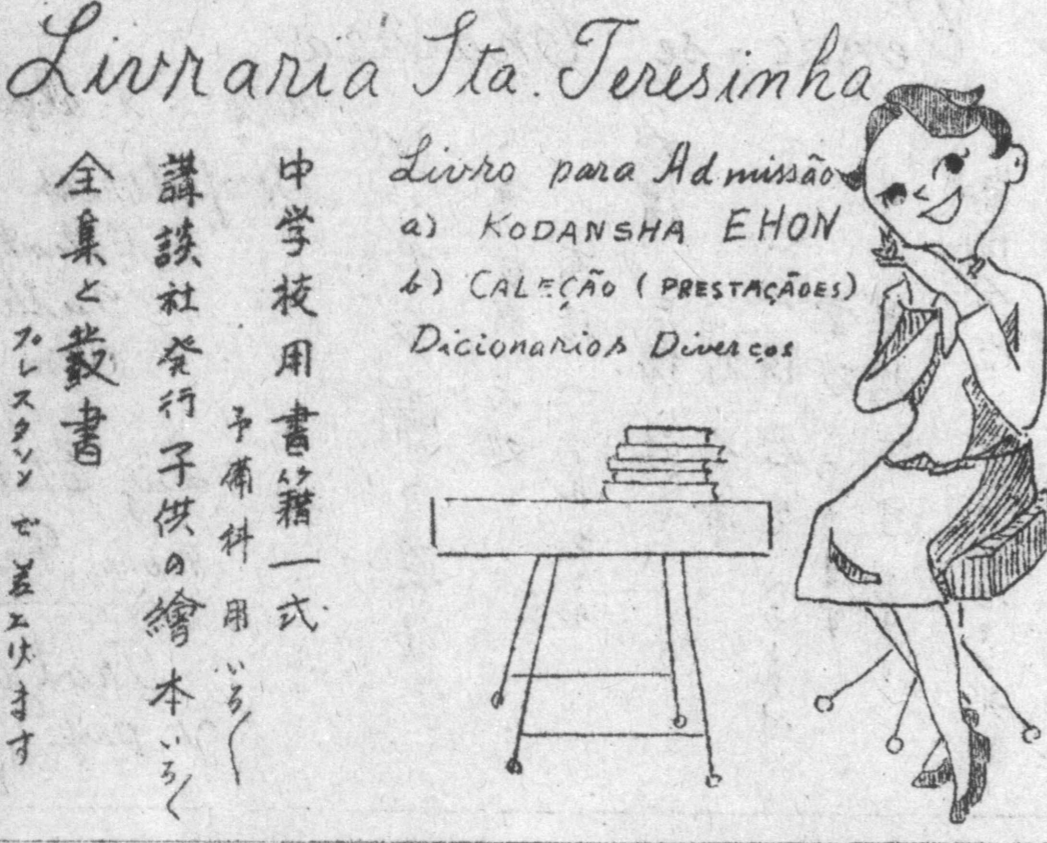 Livraria Sta. Teresinha
Livro para Admissão
a) KODANSHA EHON
b) CALEÇÃO (PRESTAÇÃOES)
Dicionarios Diverços
中学校用書籍一式
予備科用いろ〱
講談社発行子供の繪本いろ〱
全集と叢書
プレスタソンで差上げます